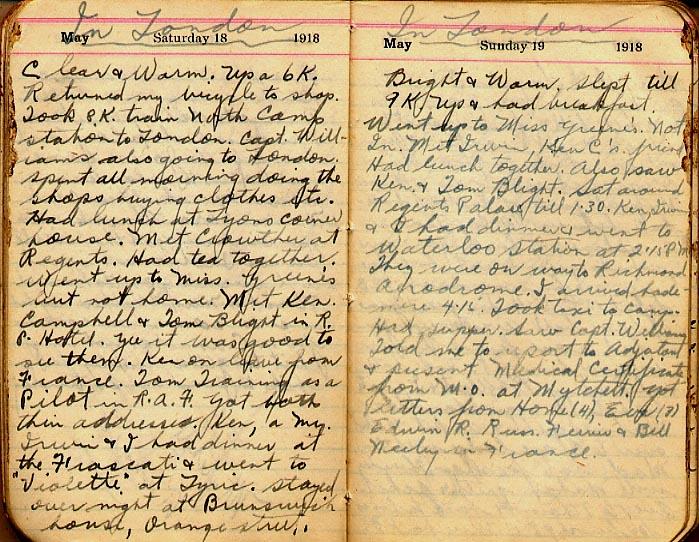 In London
May Saturday 18 1918
Clear & Warm. Up a 6 K.
Returned my bicycle to shop.
Took 8 K. train North Camp
station to London. Capt. Will-
iams also going to London.
Spent all morning doing the
shops buying clothes etc.
Had lunch at Lyons corner
house. Met Crowther at
Regents. Had tea together.
Went up to Miss. Greene's
but not home. Met Ken.
Campbell & Tom Blight in R.
P. Hotel. Gee it was good to
see them. Ken on leave from
France. Tom Training as a
Pilot in R.A.F. Got both
their addresses. Ken, a Mr.
Irwin & I had dinner at
the Frascati & went to
"Violette" at Lyric. Stayed
over night at Brunswick
house, Orange street.
In London
May Sunday 19 1918
Bright & Warm. Slept till
9 K. Up & had breakfast.
Went up to Miss Greene's. Not
In. Met Irwin, Ken C's. friend
Had lunch together. Also saw
Ken. & Tom Blight. Sat around
Regents Palace till 1.30. Ken, Irwin
& I had dinner & went to
Waterloo station at 2.15 P.M.
They were on way to Richmond
Arodrome. I arrived
4.15. Took taxi to camp.
Had supper. Saw Capt. Williams
Told me to report to Adjutant
& present Medical Certificate
from M.O. at Mytchett. Got
letters from Home (4),
Edwin R. Russ. & Bill
in France.